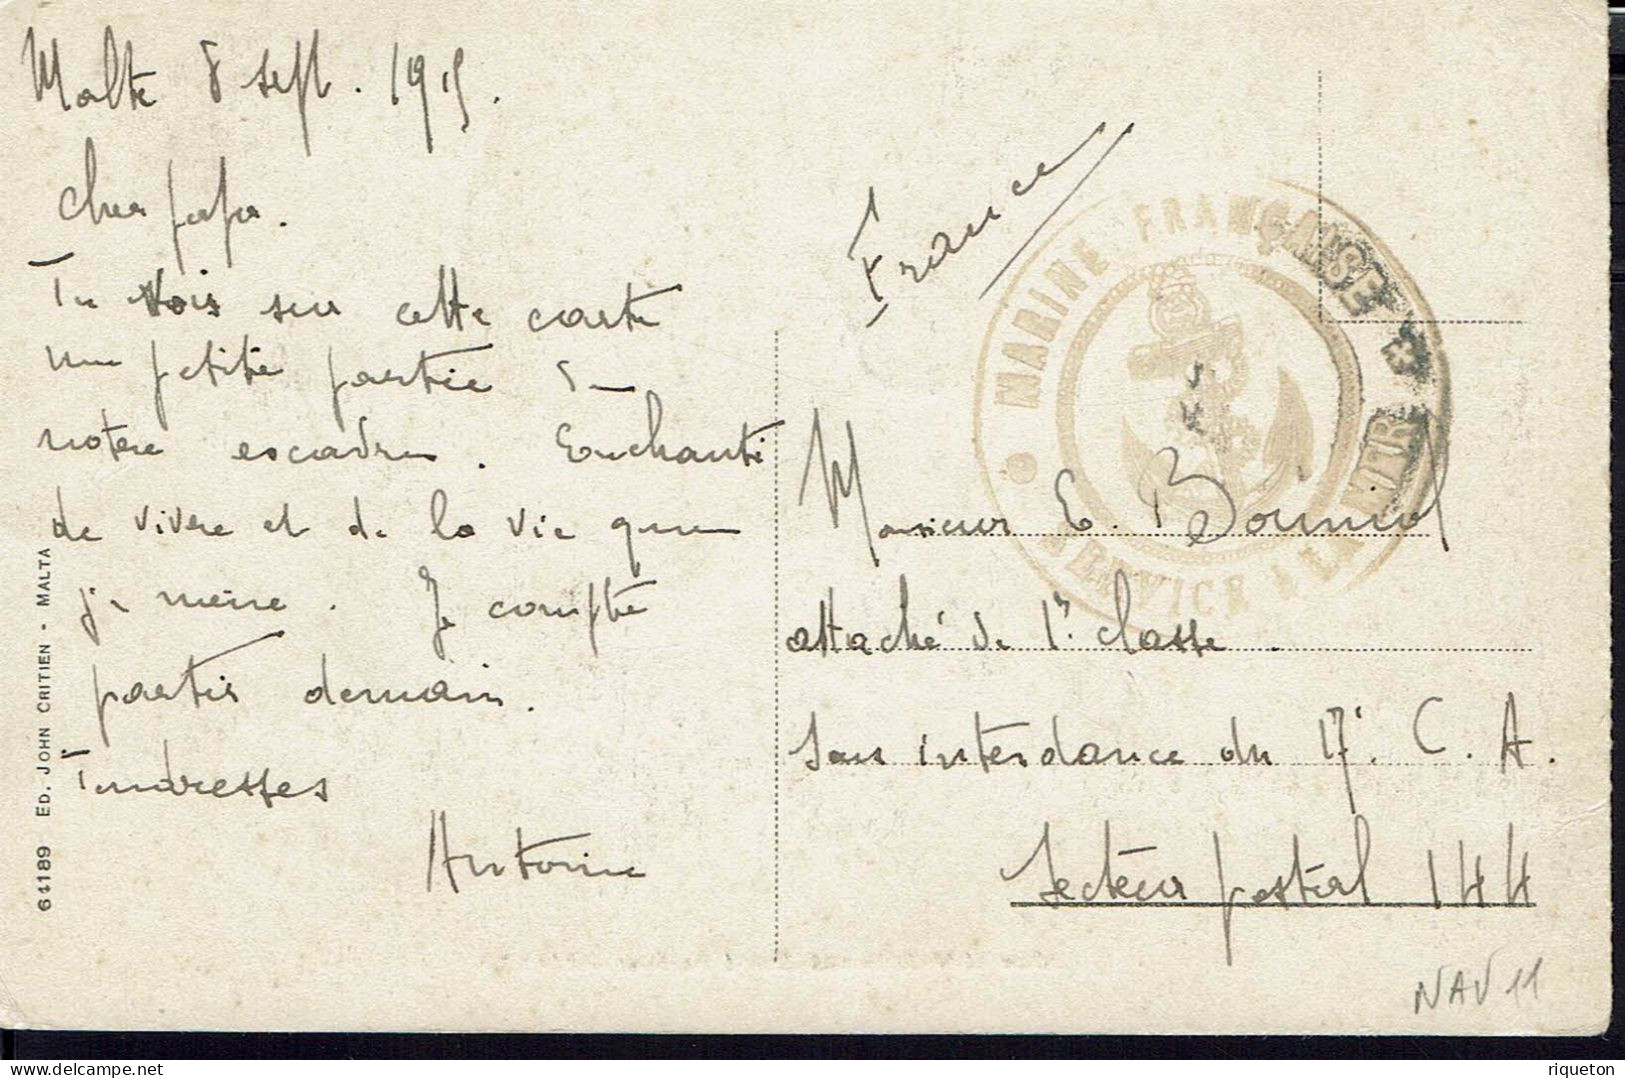 Malte 8 sept. 1915.
Cher papa.
Tu vois sur cette carte
une petite partie de
notre escadre. Enchanté
de vivre et de la vie que
je mène. Je compte
partir demain.
Tendresses
Antoine
64189 ED. JOHN CRITIEN - MALTA
France
MARINE FRANÇAISE
SERVICE À LA MER
Monsieur E. Bonniol
attaché de 1r. classe.
Sous intendance du 17e. C. A.
Secteur postal 144
NAV 11
riqueton